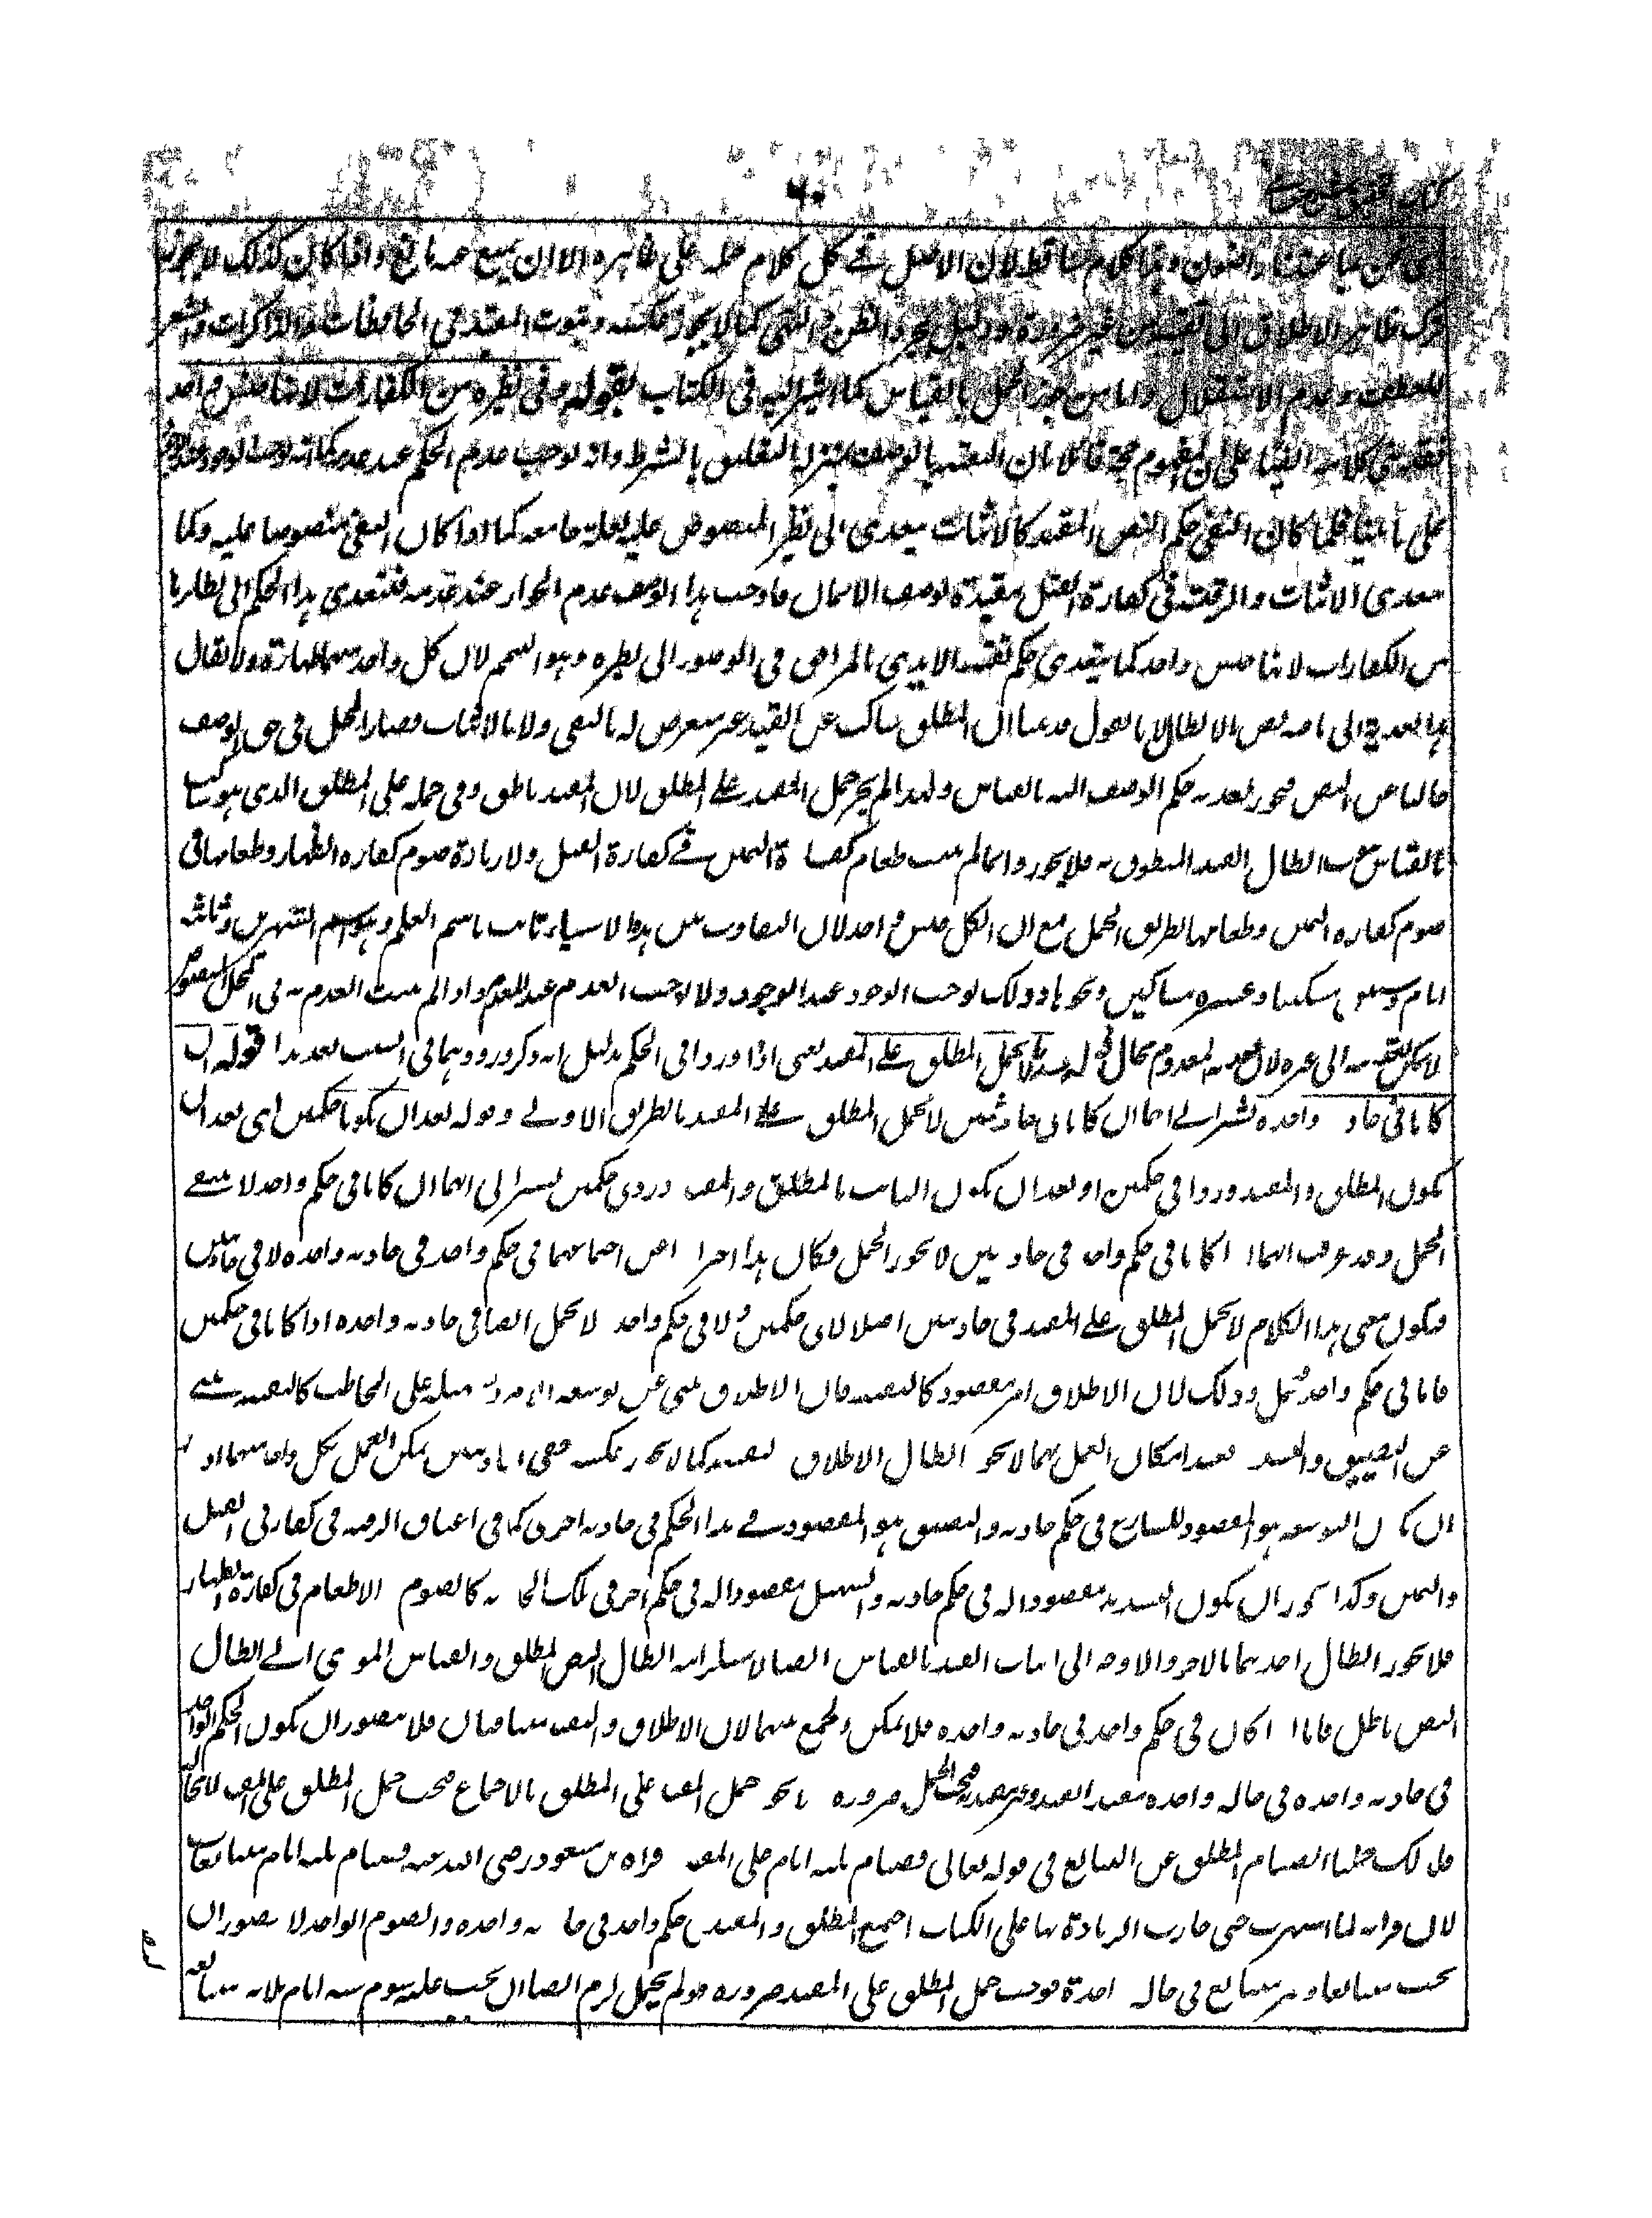 ٩٠
وهذا كلام ساقط لان الاصل فى كل كلام حمله على ظاهره الا ان يمنع عنه مانع واذا كان كذلك لا يجوز
ترك ظاهر الاطلاق الى التقييد من غير ضرورة ودليل بمجرد الظن كما لا يجوز عكسه وثبوت التقييد فى الحافظات والذاكرات
للعطف وعدم الاستقلال واما من جوز الحمل بالقياس كما اشير اليه فى الكتاب بقوله وفى نظيره من الكفارات لانها جنس واحد
المفهوم حجة قائلا بان التقييد بالوصف بمنزلة التعليق بالشرط وانه يوجب عدم الحكم عند عدمه كما انه يوجب الوجود
على ما بينا فلما كان النفى حكم النص المقيد كالاثبات يتعدى الى نظير المنصوص عليه بعلة جامعة كما اذا كان النفى منصوصا عليه وكما
يتعدى الاثبات والرقبة فى كفارة القتل مقيدة بوصف الايمان فاوجب هذا الوصف عدم الجواز عند عدمه فيتعدى هذا الحكم الى نظائرها
من الكفارات لانها جنس واحد كما يتعدى حكم تقييد الايدى بالمرافق فى الوضوء الى نظيره وهو التيمم لان كل واحد منهما طهارة ولا يقال
هذا تعدية الى ما فيه نص بالابطال لانا نقول قد بينا ان المطلق ساكت عن القيد غير متعرض له بالنفى ولا بالاثبات فصار المحل فى حق الوصف
خاليا عن النص فيجوز تعدية حكم الوصف اليه بالقياس ولهذا لم يجز حمل المقيد على المطلق لان المقيد ناطق وفى حمله على المطلق الذى هو ساكت
بالقياس ابطال القيد المنطوق به فلا يجوز وانما لم يثبت طعام كفارة اليمين فى كفارة القتل ولا زيادة صوم كفارة الظهار وطعامها فى
صوم كفارة اليمين وطعامها بطريق الحمل مع ان الكل جنس واحد لان التفاوت بين هذه الاشياء ثابت باسم العلم وهو اسم الشهرين وثلاثة
ايام وستين مسكينا وعشرة مساكين ونحوها وذلك يوجب الوجود عند الوجود ولا يوجب العدم عند العدم واذا لم يثبت العدم به فى المحل المنصوص
لا يمكن تعديته الى غيره لان تعدية المعدوم محال قوله لا يحمل المطلق على المقيد يعنى اذا وردا فى الحكم بدليل انه ذكر ورودهما فى السبب بعد هذا قوله ان
كانا فى حادثة واحدة يشير الى انهما ان كانا فى حادثتين لا يحمل المطلق على المقيد بالطريق الاولى وقوله بعد ان يكونا حكمين اى بعد ان
يكون المطلق والمقيد وردا فى حكمين او بعد ان يكون الثابت بالمطلق والمقيد وردى حكمين يشير الى انهما ان كانا فى حكم واحد لا ينبغى
الحمل وقد عرف انهما اذا كانا فى حكم واحد فى حادثتين لا يجوز الحمل فكان هذا احترازا عن اجتماعهما فى حكم واحد فى حادثة واحدة لا فى حادثتين
فيكون معنى هذا الكلام لا يحمل المطلق على المقيد فى حادثتين اصلا لا فى حكمين ولا فى حكم واحد ولا يحمل ايضا فى حادثة واحدة اذا كانا فى حكمين
فاما فى حكم واحد فيحمل وذلك لان الاطلاق امر مقصود كالتقييد فان الاطلاق ينبئ عن توسعة الامر وتسهيله على المخاطب كالتقييد ينبئ
عن التضييق والتشديد فعند امكان العمل بهما لا يجوز ابطال الاطلاق بالتقييد كما لا يجوز عكسه ففى الحادثتين يمكن العمل بكل واحد منهما اذ
ان يكون التوسعة هو المقصود للشارع فى حكم حادثة والتضييق هو المقصود فى هذا الحكم فى حادثة اخرى كما فى اعتاق الرقبة فى كفارتى القتل
واليمين وكذا يجوز ان يكون التشديد مقصودا له فى حكم حادثة والتسهيل مقصودا له فى حكم آخر فى تلك الحادثة كالصوم والاطعام فى كفارة الظهار
فلا يجوز ابطال احدهما بالآخر ولا وجه الى اثبات القيد بالقياس ايضا لاستلزامه ابطال النص المطلق والقياس المؤدى الى ابطال
النص باطل فاما اذا كان فى حكم واحد فى حادثة واحدة فلا يمكن الجمع بينهما لان الاطلاق والتقييد متنافيان فلا يتصور ان يكون الحكم الواحد
فى حادثة واحدة فى حالة واحدة مقيدا بقيد وغير مقيد به فيجب الحمل ضرورة ولا يجوز حمل المقيد على المطلق بالاجماع فيجب حمل المطلق على المقيد لا محالة
فلذلك حملنا الصيام المطلق عن التتابع فى قوله تعالى فصيام ثلثة ايام على المقيد فى قراءة ابن مسعود رضى الله عنه فصيام ثلثة ايام متتابعات
لان قراءته لما اشتهرت حتى جازت الزيادة بها على الكتاب اجتمع المطلق والمقيد فى حكم واحد فى حادثة واحدة والصوم الواحد لا يتصور ان
يجب متتابعا وغير متتابع فى حالة واحدة فوجب حمل المطلق على المقيد ضرورة ولو لم يحمل لزم ايضا ان يجب عليه صوم ستة ايام ثلاثة متتابعة